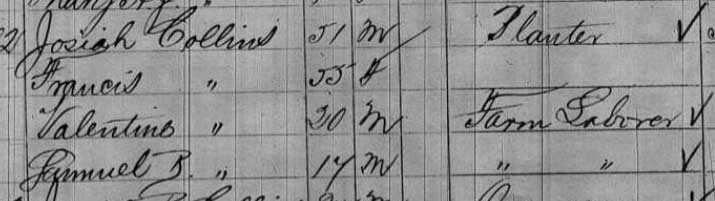 2 Josiah Collins 51 m Planter ✓
Francis " 55 f
Valentine " 20 m Farm Laborer ✓
Samuel B. " 17 m " " ✓